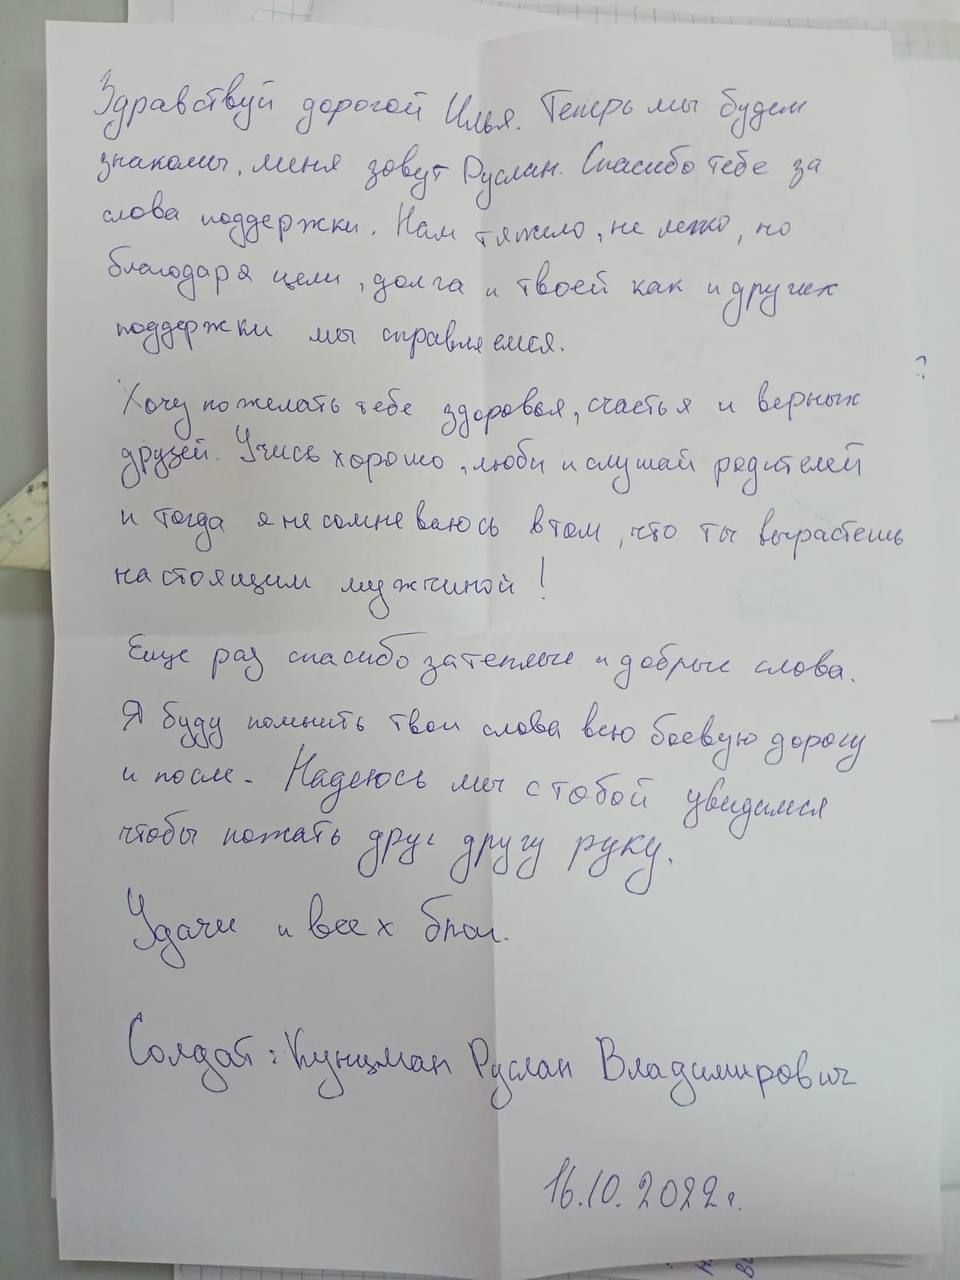 Здравствуй дорогой Илья. Теперь мы будем
знакомы, меня зовут Руслан. Спасибо тебе за
слова поддержки. Нам тяжело, не легко, но
благодаря цели, долга и твоей как и других
поддержки мы справляемся.
Хочу пожелать тебе здоровья, счастья и верных
друзей. Учись хорошо, люби и слушай родителей
и тогда я не сомневаюсь в том, что ты вырастешь
настоящим мужчиной!
Еще раз спасибо за теплые и добрые слова.
Я буду помнить твои слова всю боевую дорогу
и после. Надеюсь мы с тобой увидимся
чтобы пожать друг другу руку.
Удачи и всех благ.
Солдат: Кунцман Руслан Владимирович
16.10.2022г.